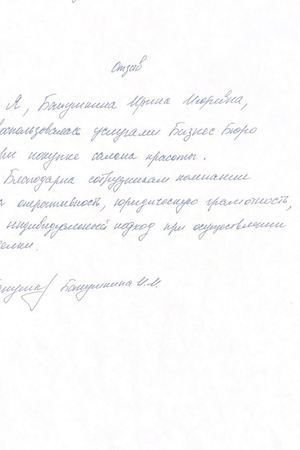 Отзыв
Я, Батушкина Ирина Игоревна,
воспользовалась услугами Бизнес Бюро
при покупке салона красоты.
Благодарна сотрудникам компании
за оперативность, юридическую грамотность,
индивидуальный подход при осуществлении
сделки.
Батушкина И.И.